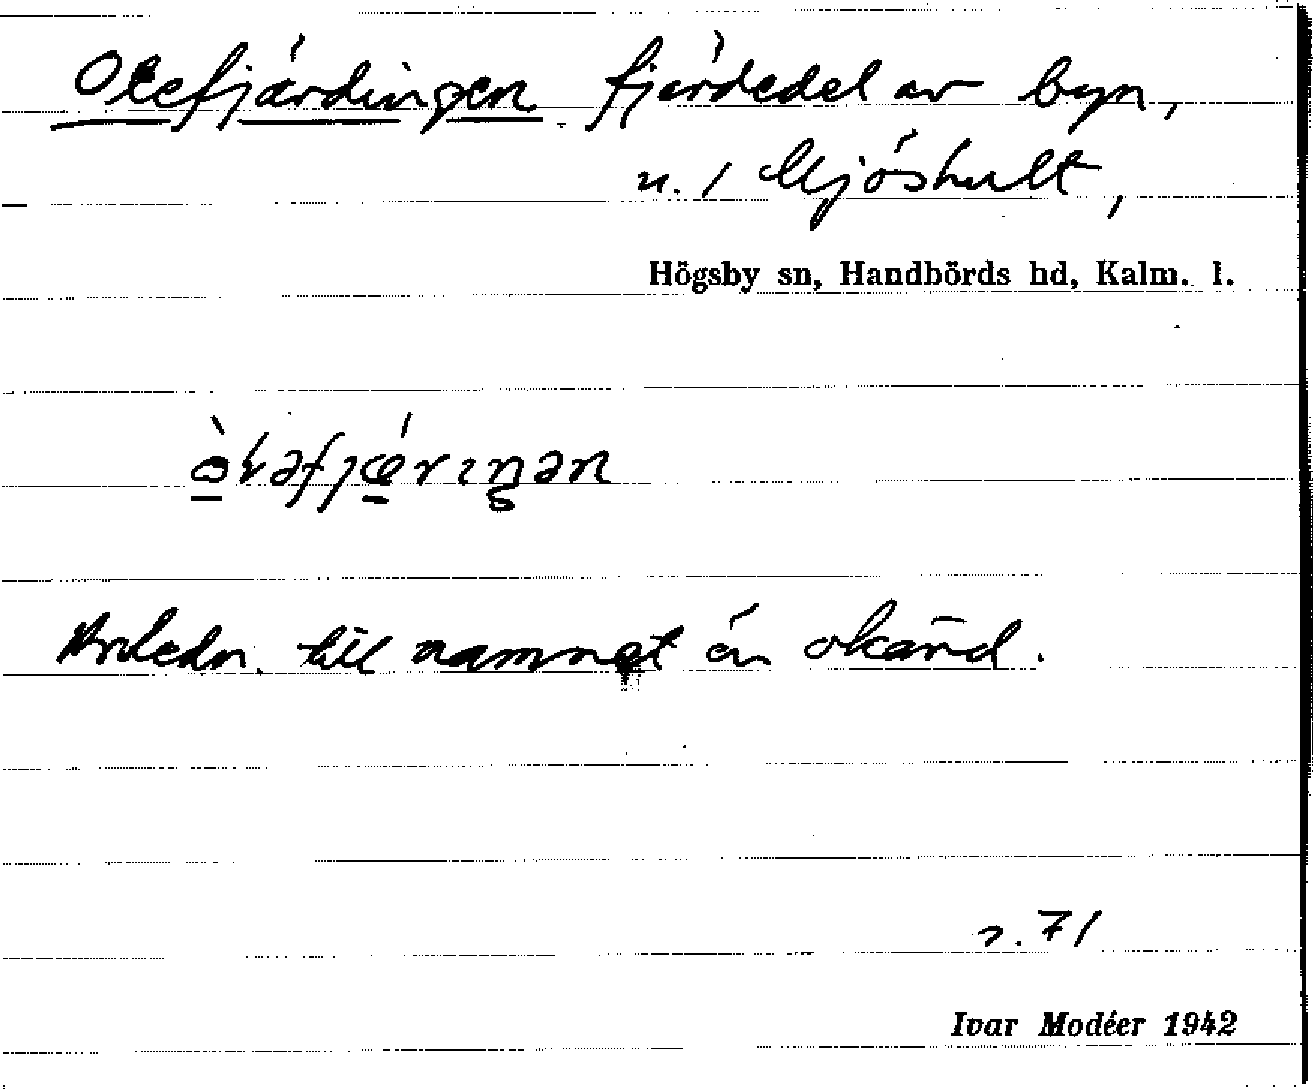 Olefjärdingen fjärdedel av byn,
n. 1 Mjöshult,
Högsby sn, Handbörds hd, Kalm. l.
Anledn. till namnet är okänd.
s. 71
Ivar Modéer 1942